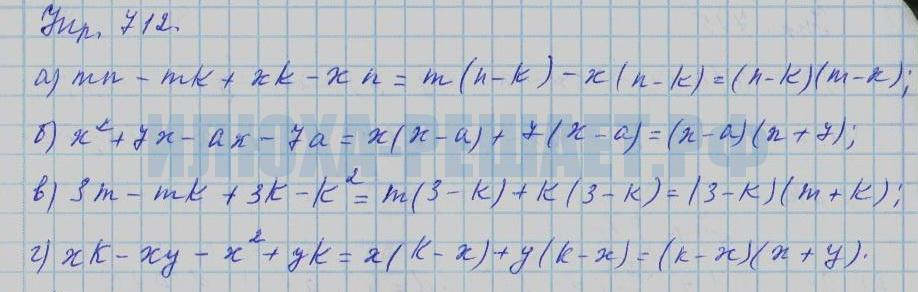 Упр. 712.
а) mn - mk + xk - xn = m(n-k) - x(n-k) = (n-k)(m-x);
б) x² + 7x - ax - 7a = x(x-a) + 7(x-a) = (x-a)(x+7);
в) 3m - mk + 3k - k² = m(3-k) + k(3-k) = (3-k)(m+k);
г) xk - xy - x² + yk = x(k-x) + y(k-x) = (k-x)(x+y).
ИЛЮХА-РЕШАЕТ.РФ